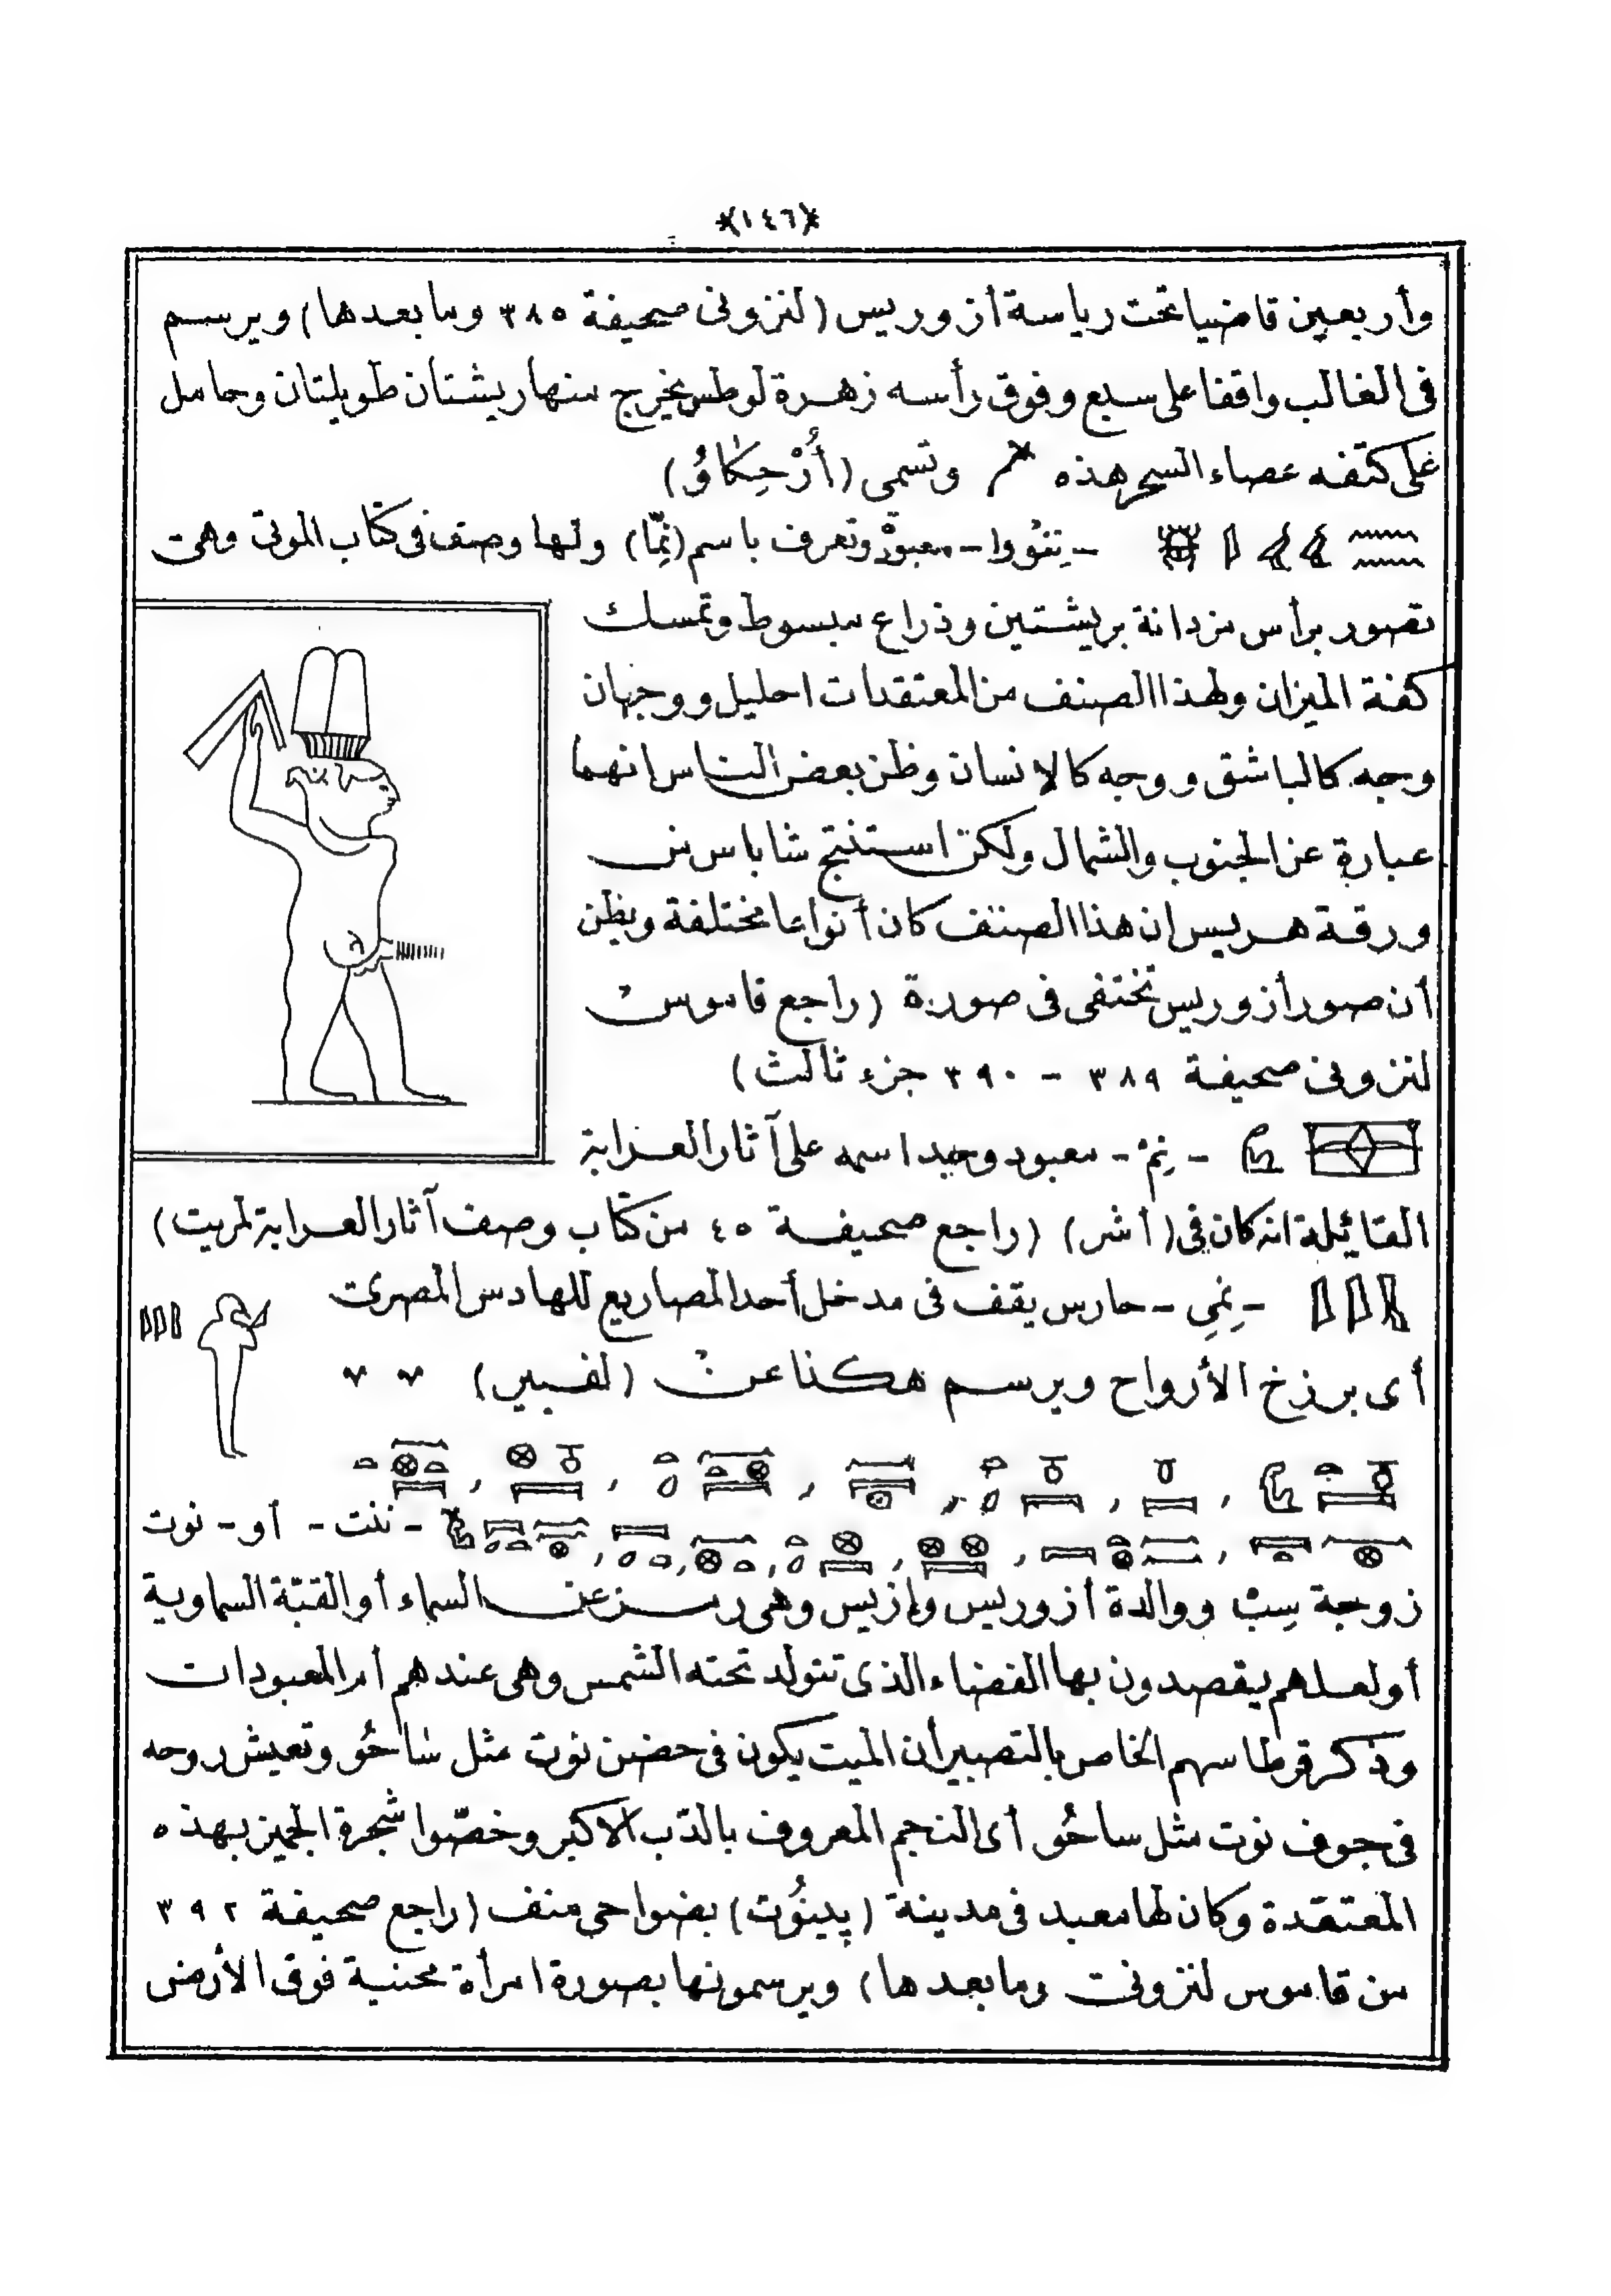 *(١٤٦)*
وأربعين قاضيا تحت رياسة أزوريس (لنزونى صحيفة ٣٨٥ وما بعدها) ويرسم
فى الغالب واقفا على سبع وفوق رأسه زهرة لوطس يخرج منها ريشتان طويلتان وحامل
على كتفه عصاء السحر هذه وتسمى (أُرْحِكَاوُ)
- نِنْوُوا - معبود وتعرف باسم (نِمّا) ولها وصف فى كتاب الموتى وهى
تصور برأس مزدانة بريشتين وذراع مبسوط وتمسك
كفة الميزان ولهذا الصنف من المعتقدات احليل ووجهان
وجه كالباشق ووجه كالانسان وظن بعض الناس انهما
عبارة عن الجنوب والشمال ولكن استنتج شاباس من
ورقة هريس ان هذا الصنف كان أنواعا مختلفة ويظن
أن صور أزوريس تختفى فى صورة (راجع قاموس
لنزونى صحيفة ٣٨٩ - ٣٩٠ جزء ثالث)
- نِمْ - معبود وجد اسمه على آثار العرابة
القائلة انه كان فى (أشر) (راجع صحيفة ٤٥ من كتاب وصف آثار العرابة لمريت)
- نِمِى - حارس يقف فى مدخل أحد المصاريع للهادس المصرى
أى برزخ الأرواح ويرسم هكذا عن (لفبير)
- ننت - أو - نوت
زوجة سِبْ ووالدة أزوريس وإزيس وهى رمز عن السماء أو القبّة السماوية
أو لعلهم يقصدون بها الفضاء الذى تتولد تحته الشمس وهى عندهم أم المعبودات
وذكر قرطاسهم الخاص بالتصبير أن الميت يكون فى حضن نوت مثل ساحُو وتعيش روحه
فى جوف نوت مثل ساحُو أى النجم المعروف بالدّب الاكبر وخصّوا شجرة الجميز بهذه
المعتقدة وكان لها معبد فى مدينة (پِينُوت) بضواحى منف (راجع صحيفة ٣٩٢
من قاموس لنزونى وما بعدها) ويرسمونها بصورة امرأة محنية فوق الأرض